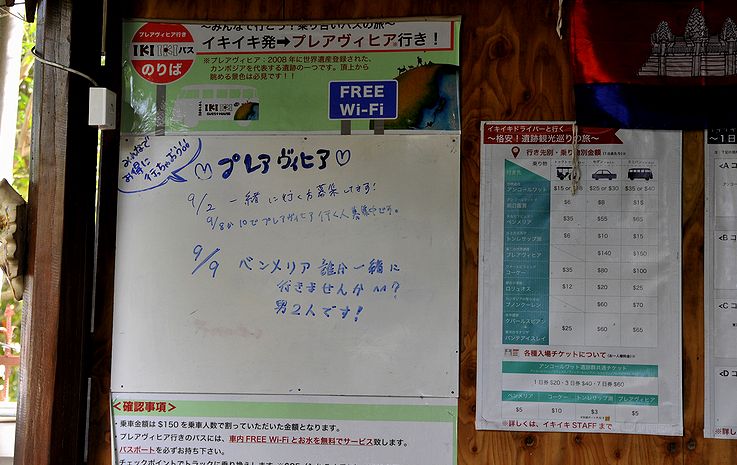 ～みんなで行こう！乗り合いバスの旅～
イキイキ発➡プレアヴィヒア行き！
プレアヴィヒア行き
IKI IKI バス
のりば
※プレアヴィヒア：2008年に世界遺産登録された、
カンボジアを代表する遺跡の一つです。頂上から
眺める景色は必見です！！
IKI IKI
GUESTHOUSE
FREE
Wi-Fi
みんなで
お得に
行っちゃおう
♡プレアヴィヒア♡
9/2 一緒に行く方募集してます!
9/9 ベンメリア 誰か一緒に
行きませんか
男2人です!
＜確認事項＞
・乗車金額は＄150を乗車人数で割っていただいた金額となります。
・プレアヴィヒア行きのバスには、車内FREE Wi-Fiとお水を無料でサービス致します。
パスポートを必ずお持ち下さい。
イキイキドライバーと行く
～格安！遺跡観光巡りの旅～
行き先別・乗り物別金額
乗り物
行き先
アンコールワット $15 or $25 or $30 $35 or $40
$6 $10 $15
ベンメリア $35 $55 $65
トンレサップ湖 $6 $10 $15
プレアヴィヒア $140 $150
コーケー $35 $80 $100
ロリュオス $12 $20 $25
プノンクーレン $60 $70
クバールスピアン
バンテアイスレイ $25 $60 $65
各種入場チケットについて
アンコールワット遺跡群共通チケット
1日券 $20・3日券 $40・7日券 $60
ベンメリア コーケー トンレサップ湖 プレアヴィヒア
$5 $10 $3 $5
※詳しくは、イキイキ STAFF まで